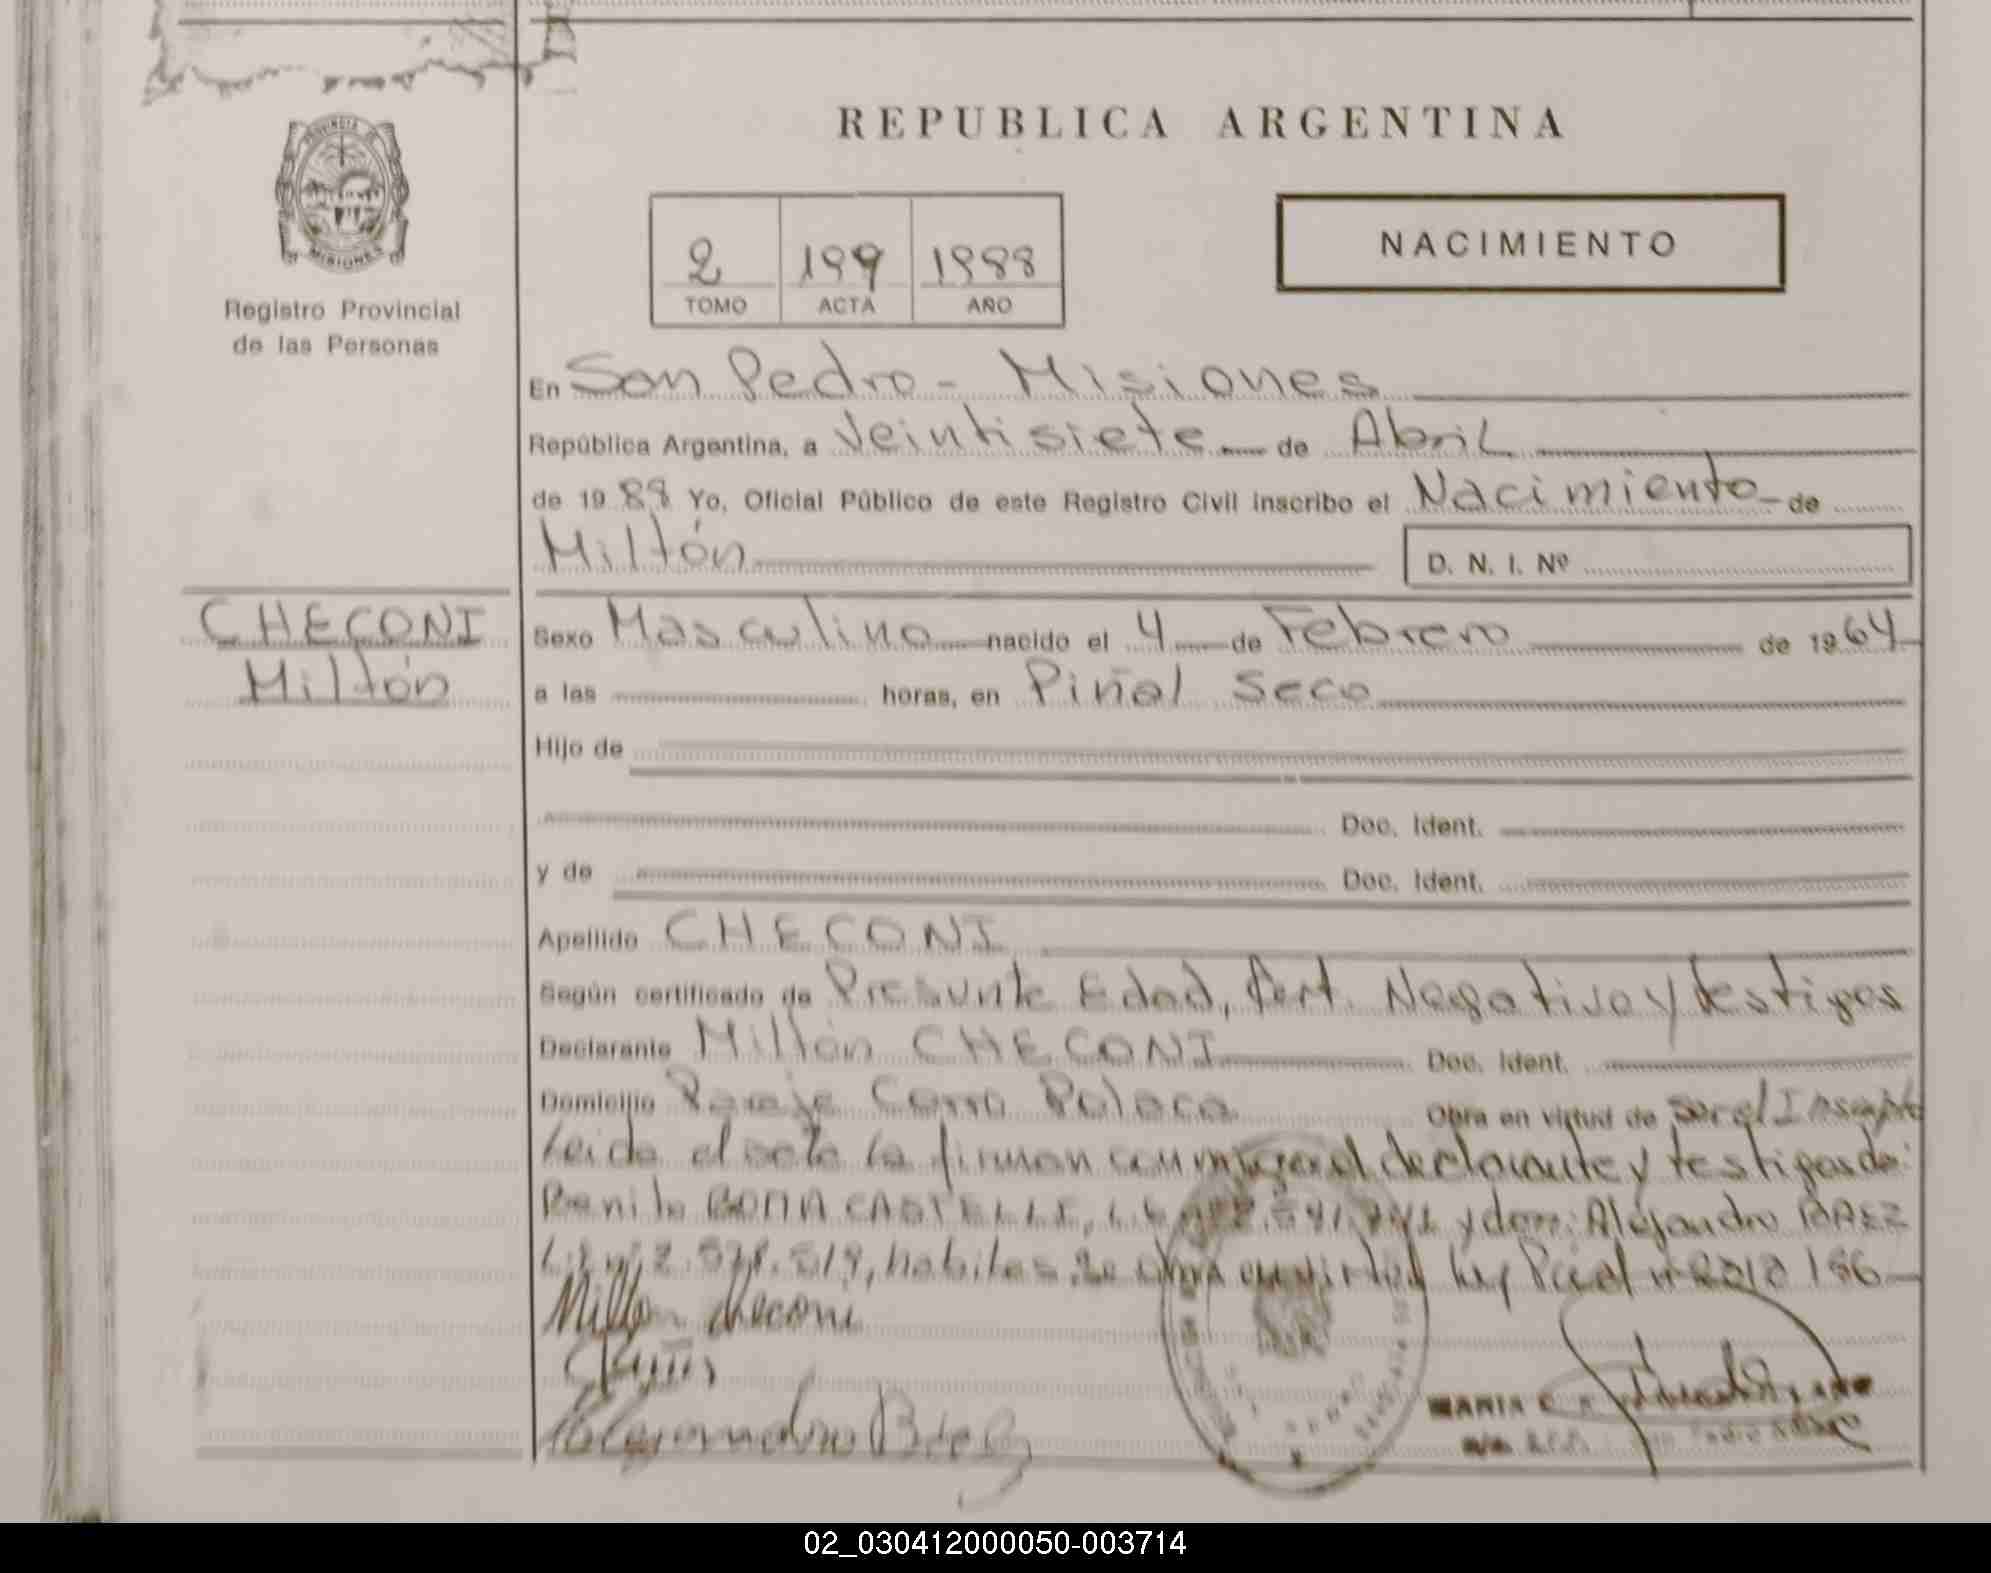 REPUBLICA ARGENTINA
PROVINCIA DE MISIONES
Registro Provincial
de las Personas
2 199 1988
TOMO ACTA AÑO
NACIMIENTO
En San Pedro - Misiones
República Argentina, a Veintisiete de Abril
de 1988 Yo, Oficial Público de este Registro Civil inscribo el Nacimiento de
Miltón
D. N. I. Nº
CHECONI
Miltón
Sexo Masculino nacido el 4 de Febrero de 1964
a las horas, en Piñal Seco
Hijo de
Doc. Ident.
y de Doc. Ident.
Apellido CHECONI
Según certificado de Presunta Edad, Negativo y testigos
Declarante Miltón CHECONI Doc. Ident.
Domicilio Paraje Cerro Polaco Obra en virtud de ser el
Leida el acta la firman conmigo el declarante y testigos
y don: Alejandro BAEZ
habiles. Se obra en virtud ley
Milton Checoni
Alejandro Baez
MARIA
02_030412000050-003714